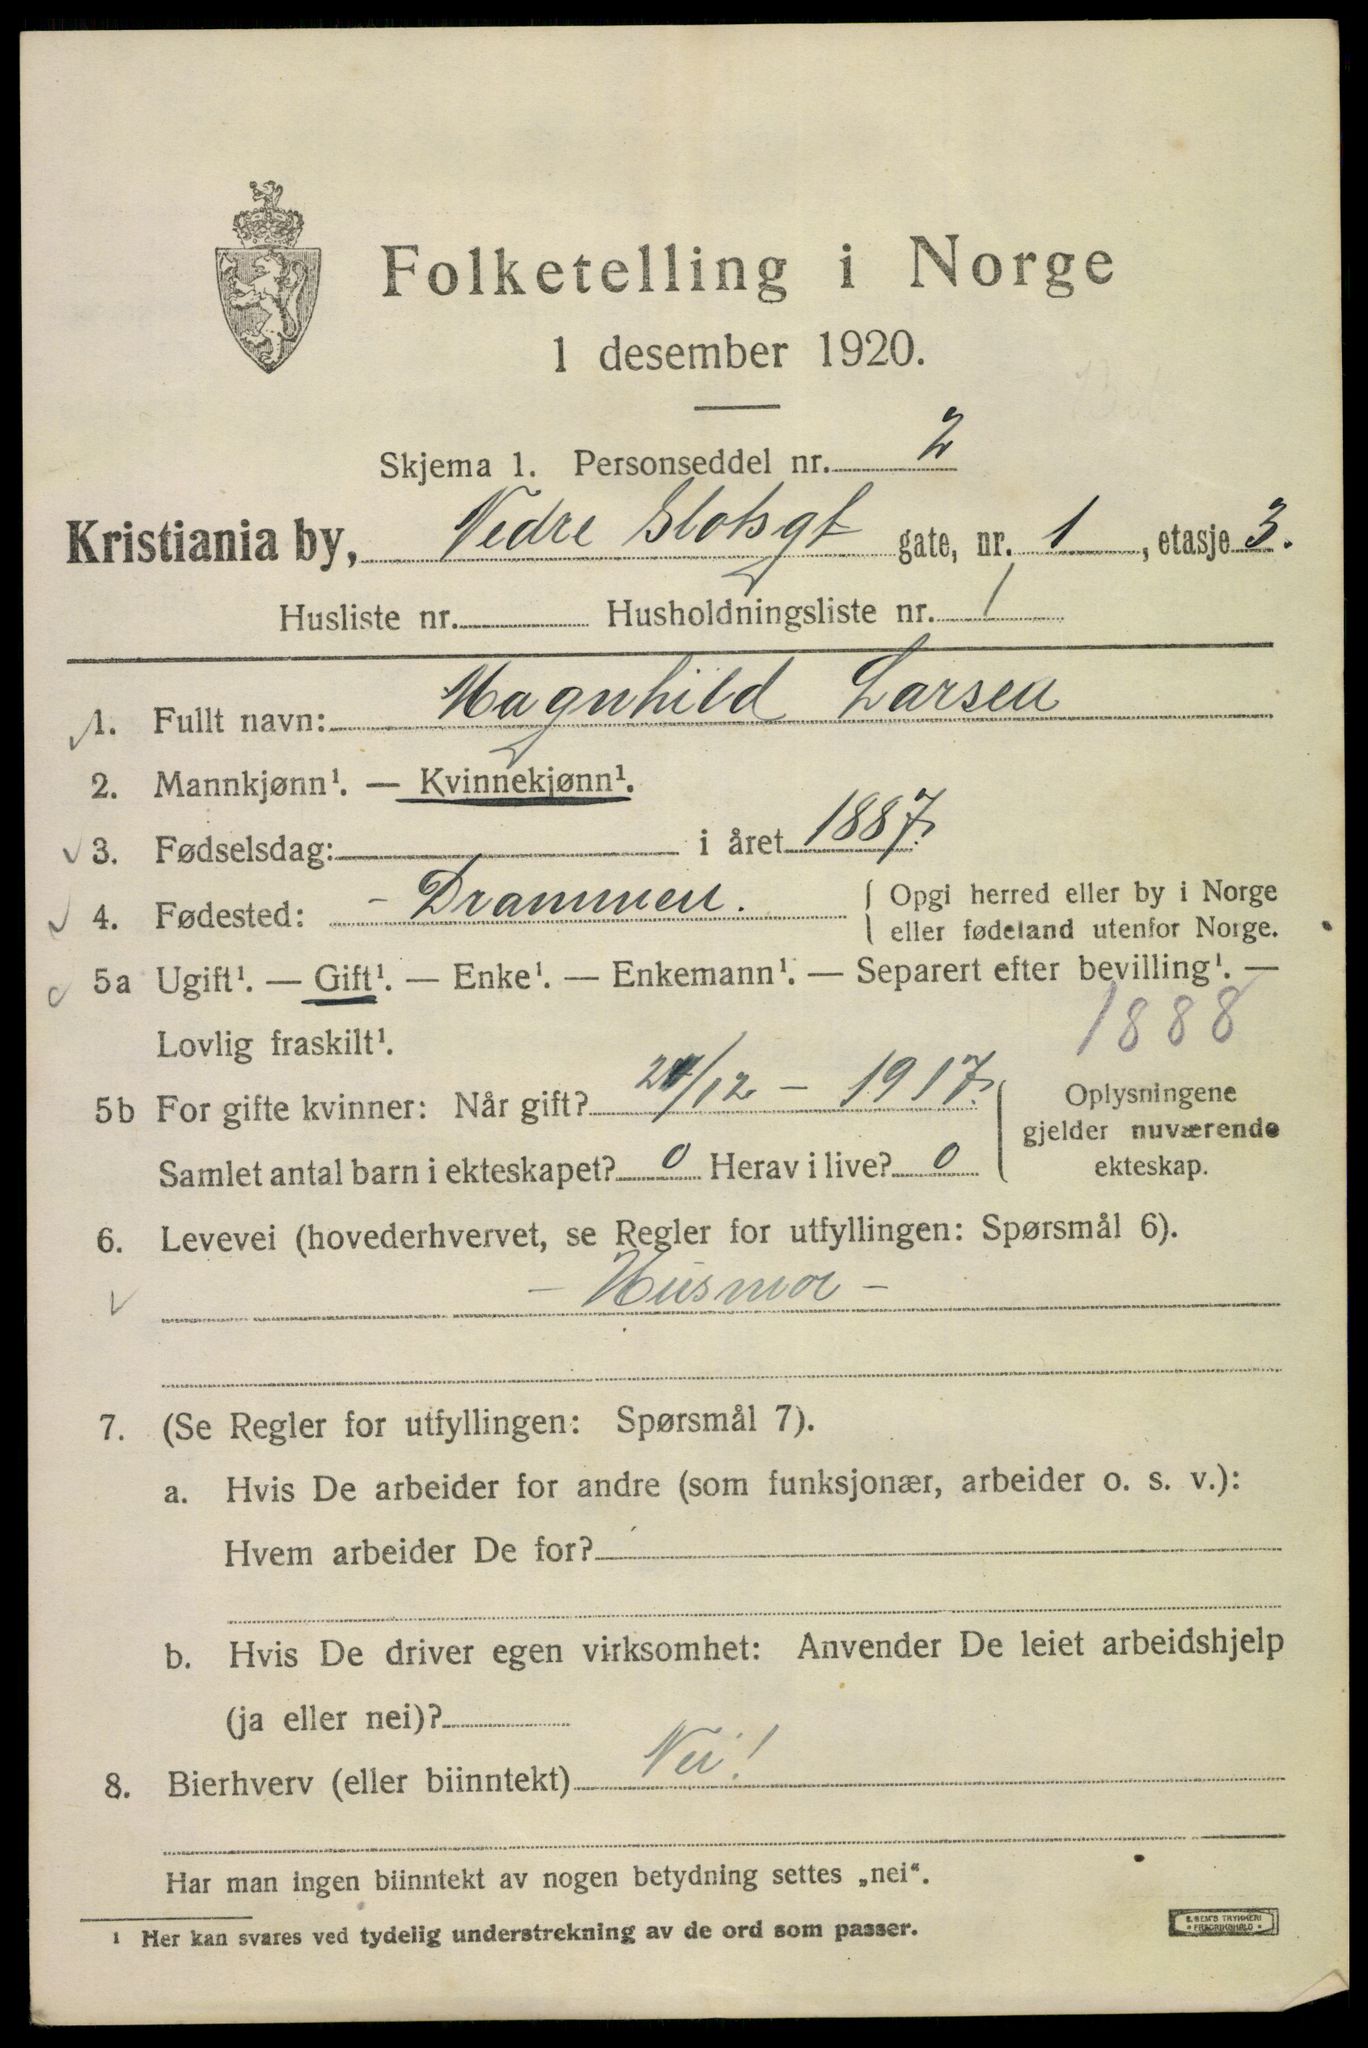 Folketelling i Norge
1 desember 1920.
Skjema 1. Personseddel nr. 2
Kristiania by, Nedre Slotsgt gate, nr. 1, etasje 3.
Husliste nr. Husholdningsliste nr. 1
1. Fullt navn: Magnhild Larsen
2. Mannkjønn¹. — Kvinnekjønn¹.
3. Fødselsdag: i året 1887.
4. Fødested: - Drammen. Opgi herred eller by i Norge
eller fødeland utenfor Norge.
5a Ugift¹. — Gift¹. — Enke¹. — Enkemann¹. — Separert efter bevilling¹. —
Lovlig fraskilt¹. 1888
5b For gifte kvinner: Når gift? /12 - 1917. Oplysningene
gjelder nuværende
Samlet antal barn i ekteskapet? 0 Herav i live? 0 ekteskap.
6. Levevei (hovederhvervet, se Regler for utfyllingen: Spørsmål 6).
- Husmor -
7. (Se Regler for utfyllingen: Spørsmål 7).
a. Hvis De arbeider for andre (som funksjonær, arbeider o. s. v.):
Hvem arbeider De for?
b. Hvis De driver egen virksomhet: Anvender De leiet arbeidshjelp
(ja eller nei)?
8. Bierhverv (eller biinntekt) Nei!
Har man ingen biinntekt av nogen betydning settes „nei“.
¹ Her kan svares ved tydelig understrekning av de ord som passer.
E. SEM'S TRYKKERI
FREDRIKSHALD